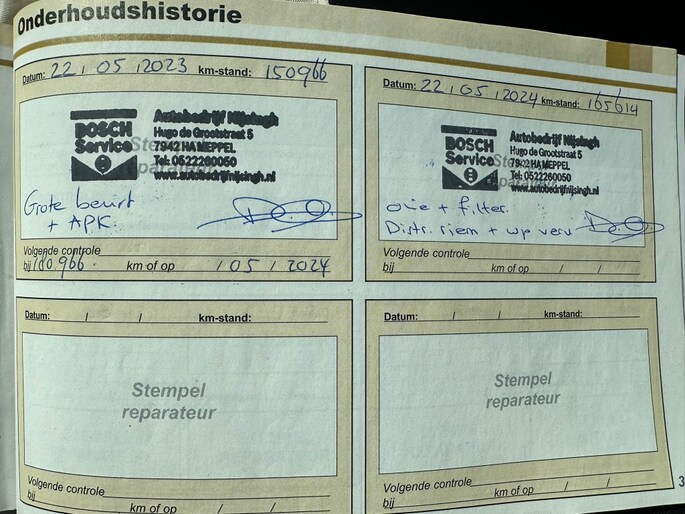 Onderhoudshistorie
Datum: 22 / 05 / 2023 km-stand: 150966
BOSCH
Service
Autobedrijf Nijsingh
Hugo de Grootstraat 5
7942 HA MEPPEL
Tel: 0522260050
www.autobedrijfnijsingh.nl
Stempel
reparateur
Grote beurt
+ APK
Volgende controle
bij 180966 km of op / 05 / 2024
Datum: 22 / 05 / 2024 km-stand: 165614
BOSCH
Service
Autobedrijf Nijsingh
Hugo de Grootstraat 5
7942 HA MEPPEL
Tel: 0522260050
www.autobedrijfnijsingh.nl
olie + filter.
Distr. riem + wp verv
Volgende controle
bij km of op / /
Datum: / / km-stand:
Stempel
reparateur
Volgende controle
bij km of op / /
Datum: / / km-stand:
Stempel
reparateur
Volgende controle
bij km of op / /
3